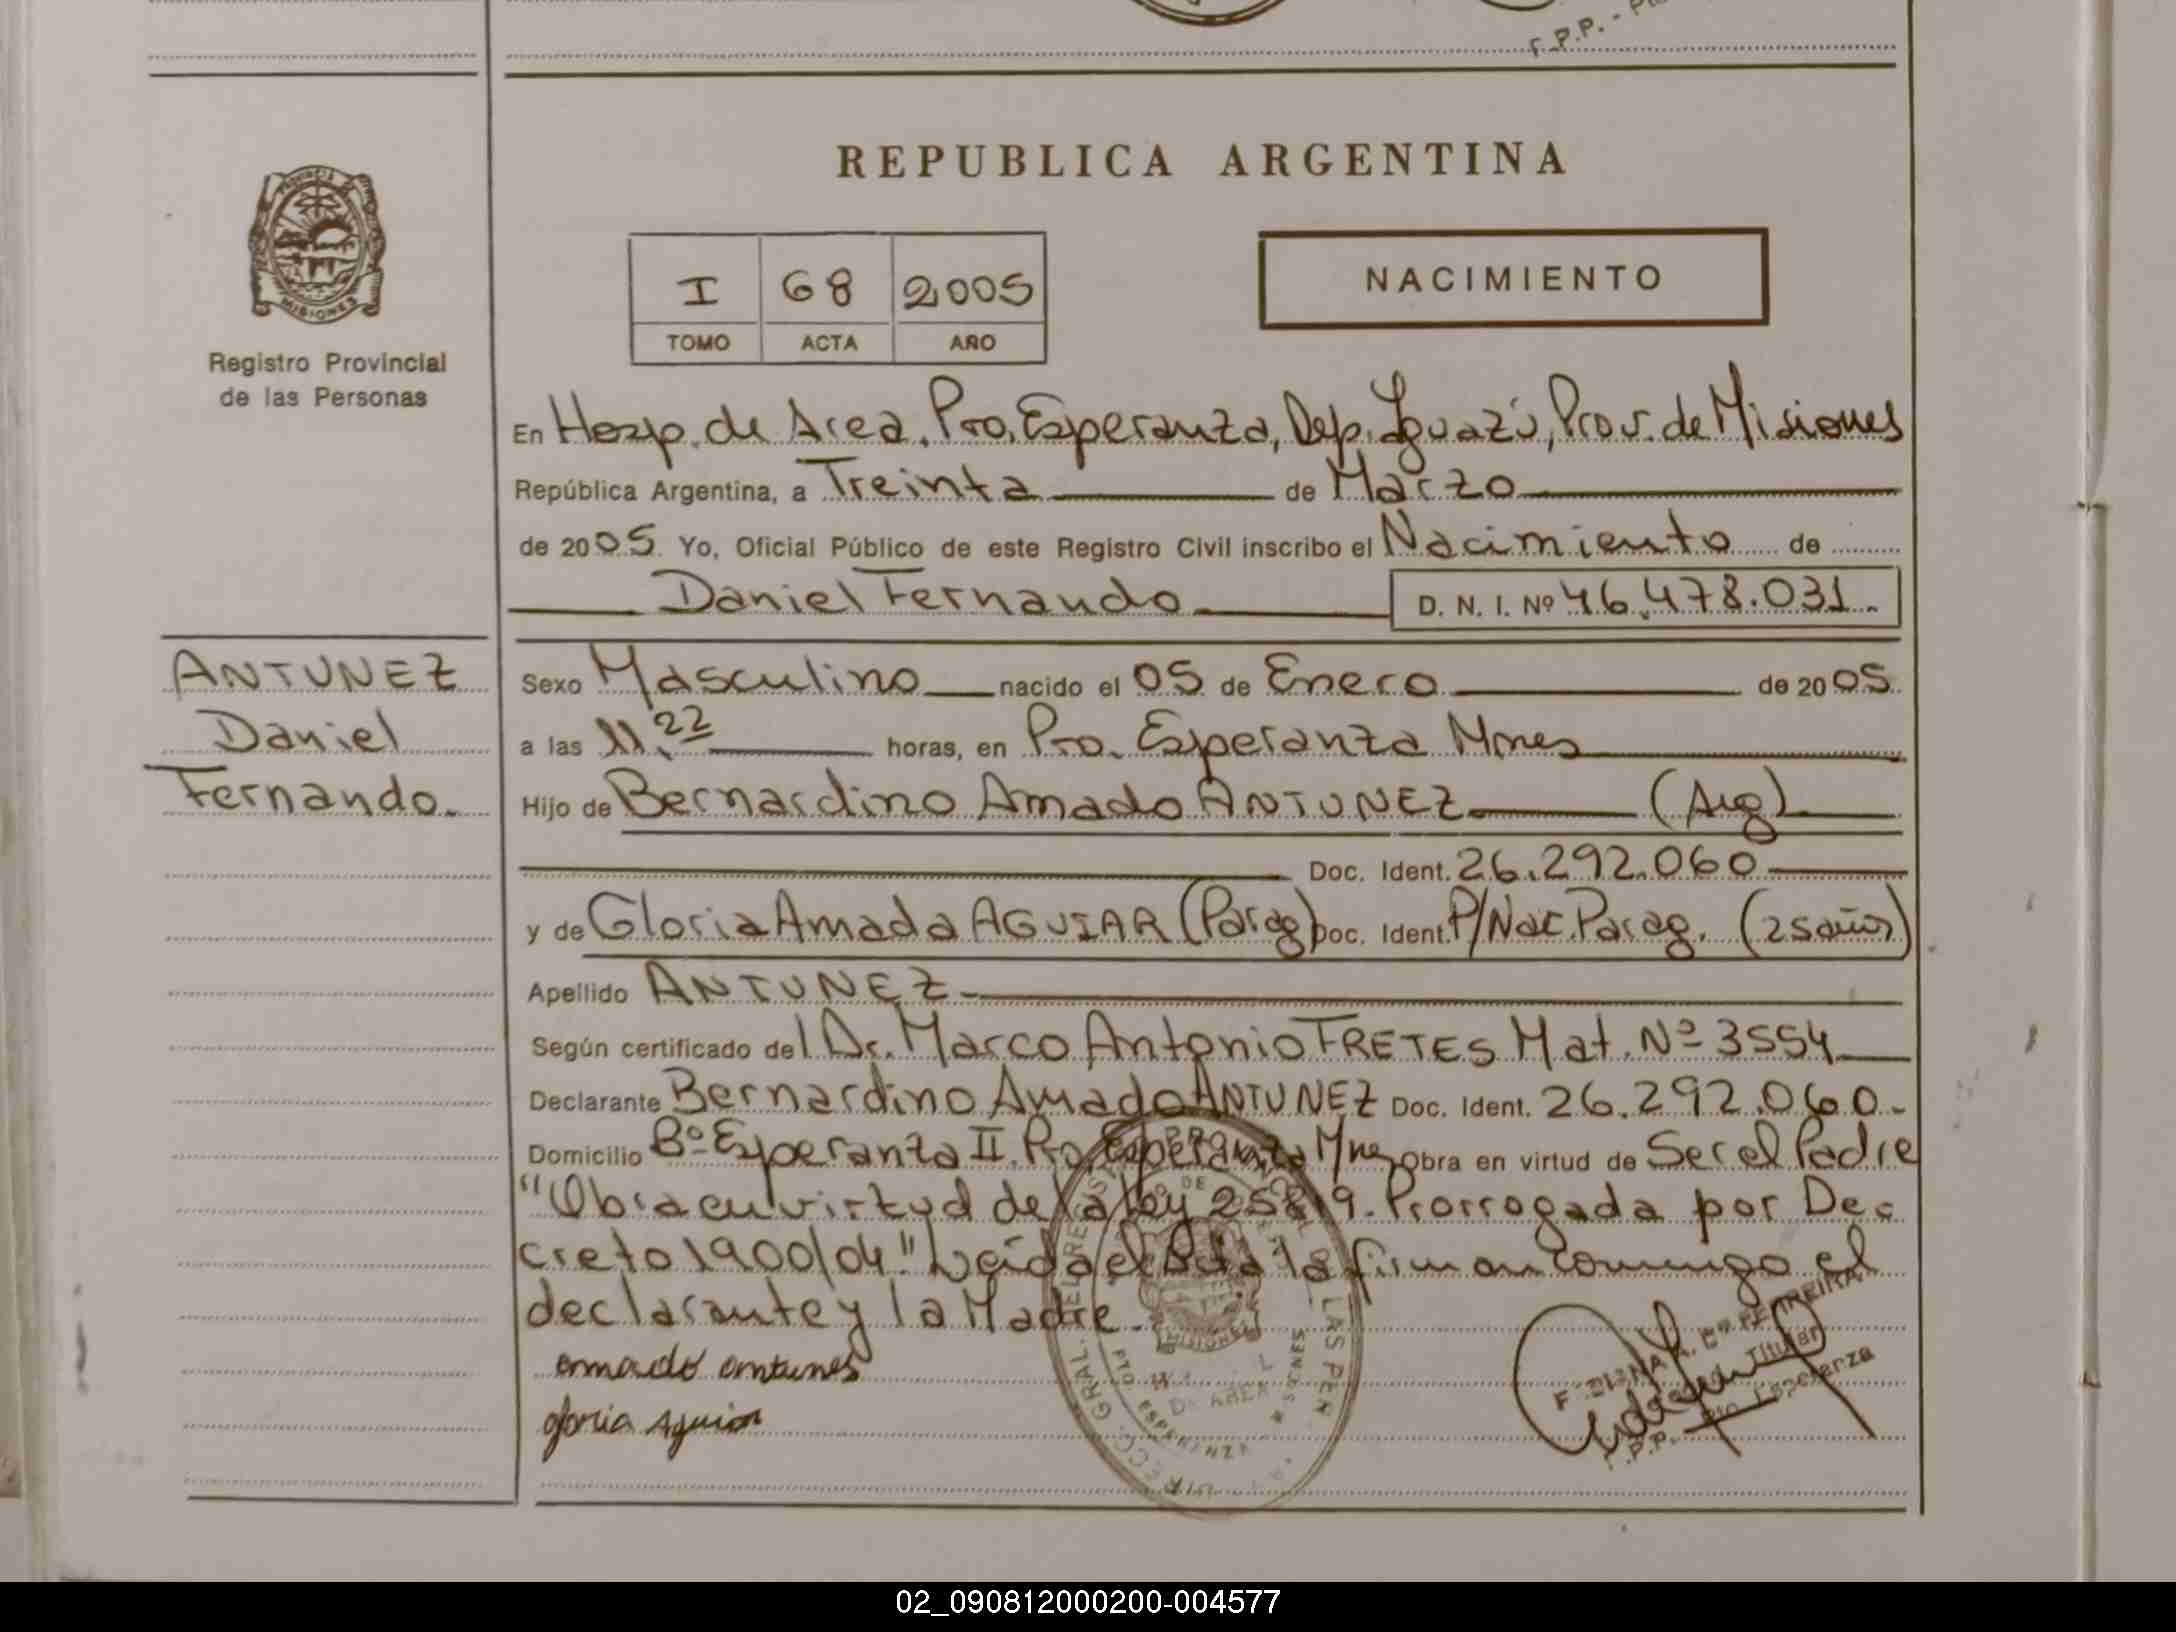 REPUBLICA ARGENTINA
I 68 2005
TOMO ACTA AÑO
NACIMIENTO
MISIONES
Registro Provincial
de las Personas
En Hosp. de Area. Pto. Esperanza, Dep. Iguazú, Prov. de Misiones
República Argentina, a Treinta de Marzo
de 2005. Yo, Oficial Público de este Registro Civil inscribo el Nacimiento de
Daniel Fernando D. N. I. Nº 46.478.031.
ANTUNEZ
Daniel
Fernando.
Sexo Masculino nacido el 05 de Enero de 2005.
a las 11.22 horas, en Pto. Esperanza Mnes
Hijo de Bernardino Amado ANTUNEZ (Arg)
Doc. Ident. 26.292.060
y de Gloria Amada AGUIAR (Parag) Doc. Ident. P/Nac. Parag. (25 años)
Apellido ANTUNEZ
Según certificado del Dr. Marco Antonio FRETES Mat. Nº 3554
Declarante Bernardino Amado ANTUNEZ Doc. Ident. 26.292.060.
Domicilio Bº Esperanza II. Pto. Esperanza Mnes Obra en virtud de Ser el Padre
"Obra en virtud de la ley 25819. Prorrogada por De
creto 1900/04." Leída el Acta la firman conmigo el
declarante y la Madre.
amado antunes
gloria Aguiar
Titular
Pto. Esperanza
R.P.P.
02_090812000200-004577